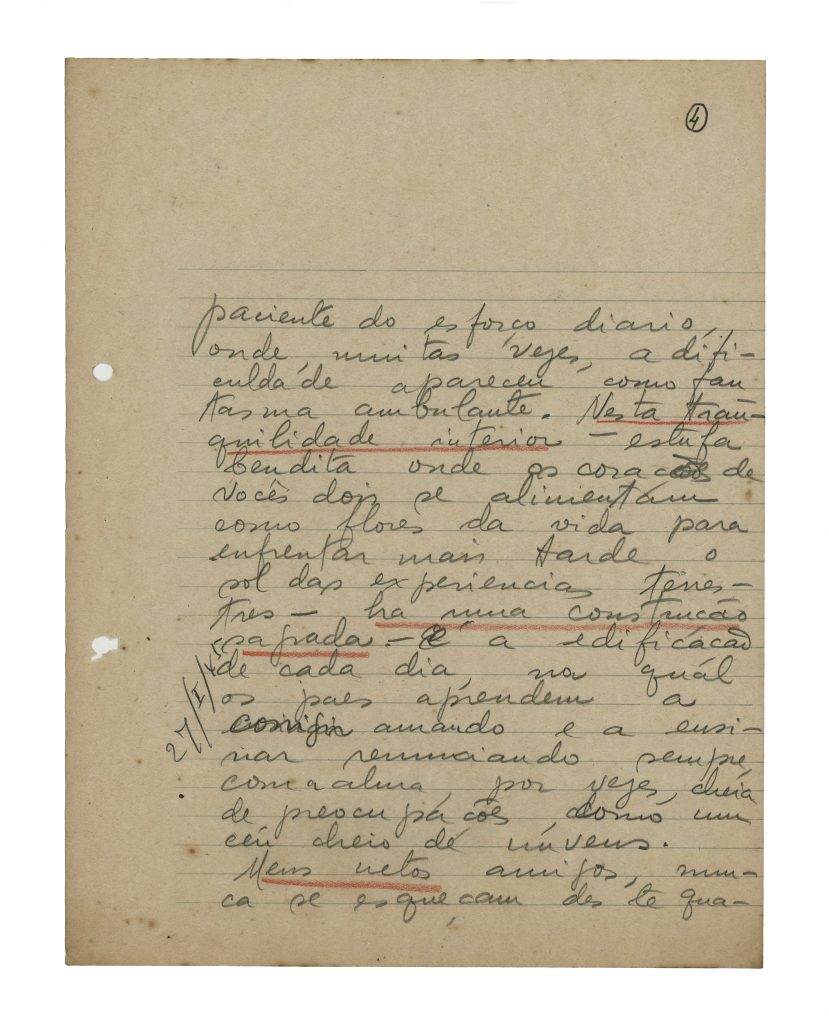 4
paciente do esforço diario,
onde, muitas vezes, a difi-
culdade apareceu como fan
tasma ambulante. Nesta tran-
quilidade interior — estufa
bendita onde os corações de
vocês dois se alimentam
como flores da vida para
enfrentar mais tarde o
sol das experiencias terres-
tres — ha uma construcção
sagrada. — É a edificacão
de cada dia, na quál
os paes aprendem a
corrigir amando e a ensi-
nar renunciando sempre,
com a alma, por vezes, cheia
de preocupações, como um
ceu cheio de núvens.
Meus netos amigos, nun-
ca se esqueçam des te qua-
27/I/